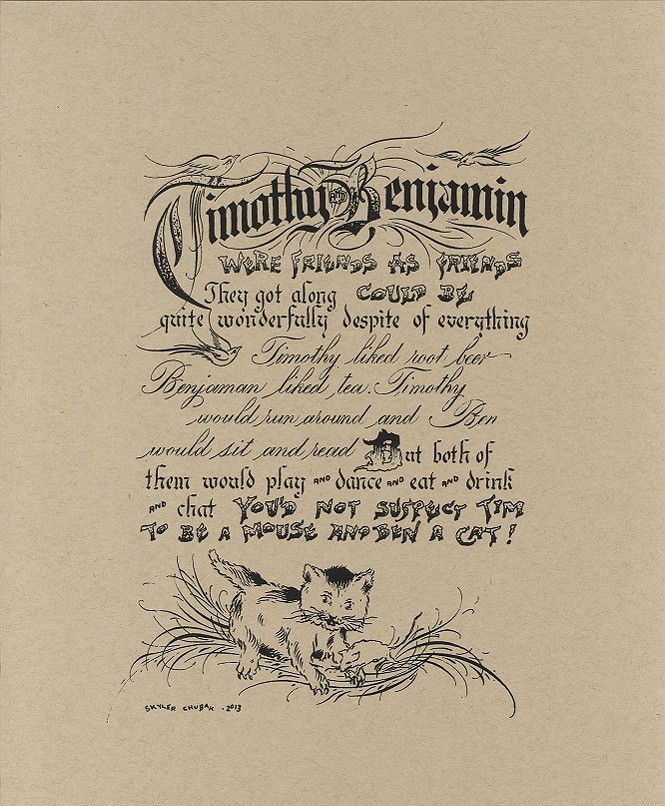 Timothy and Benjamin
WERE FRIENDS AS FRIENDS
They got along COULD BE
quite wonderfully despite of everything
Timothy liked root beer
Benjaman liked tea. Timothy
would run around and Ben
would sit and read But both of
them would play AND dance AND eat AND drink
AND chat YOU'D NOT SUSPECT TIM
TO BE A MOUSE AND BEN A CAT!
SKYLER CHUBAK . 2013